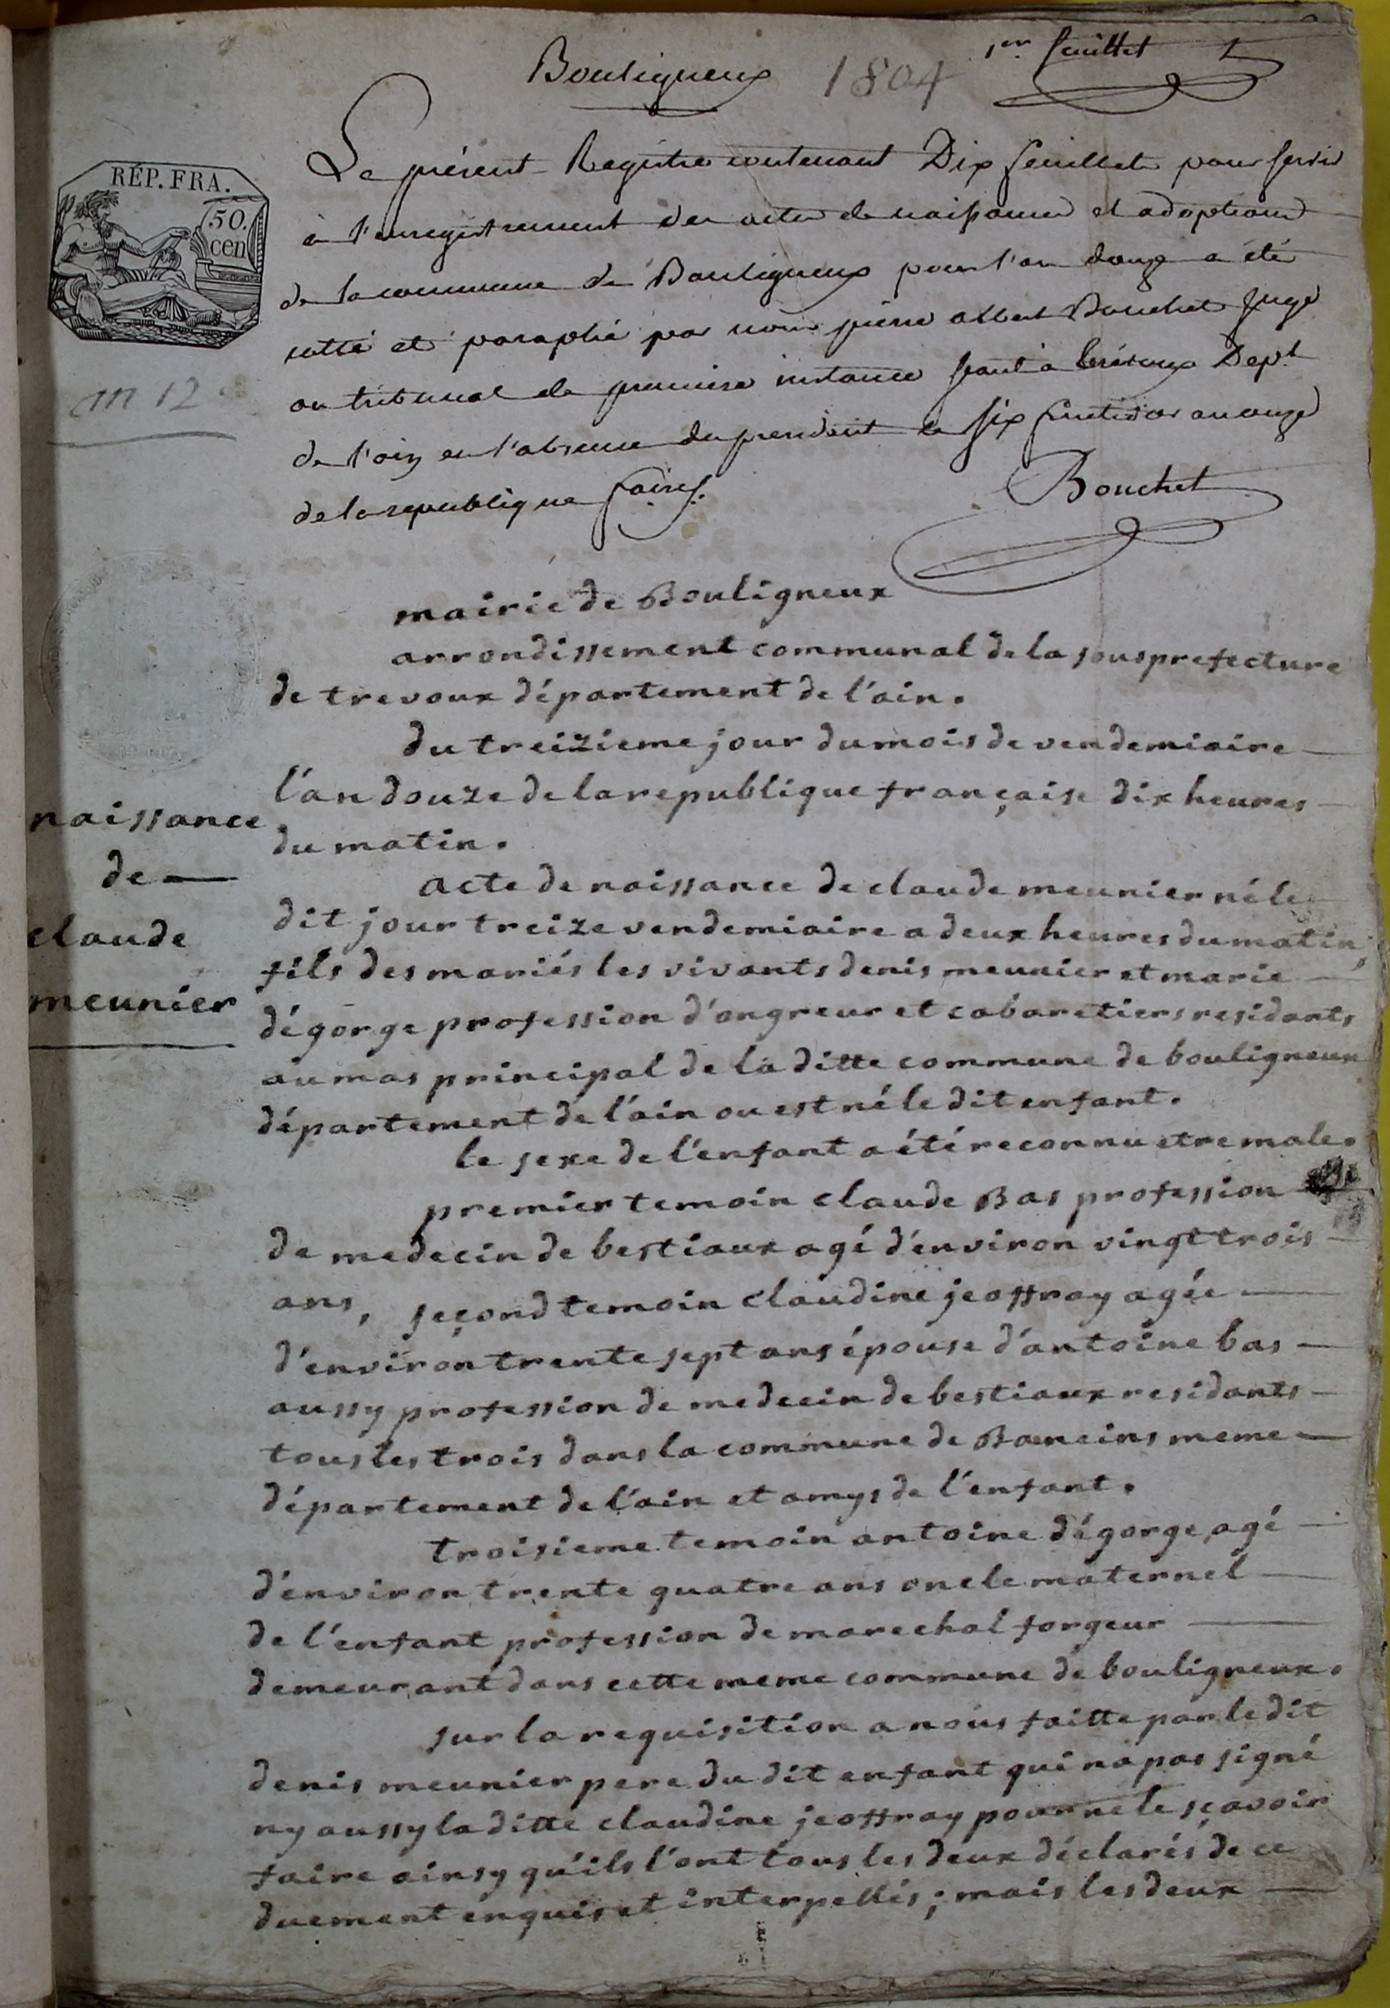 Bouligneux 1804 1er feuillet
RÉP. FRA.
50.
cen
an 12
Le présent Registre contenant Dix feuillets pour servir
à l'enregistrement des actes de naissance et adoptions
de la commune de Bouligneux pour l'an douze a été
cotté et paraphé par nous pierre albert Bouchet Juge
au tribunal de premiere instance séant à trévoux Dept
de l'ain en l'absence du president le six fructidor an onze
de la republique francse.
Bouchet
mairie de Bouligneux
arrondissement communal de la sousprefecture
de trevoux département de l'ain.
du treizieme jour du mois de vendemiaire
l'an douze de la republique française dix heures
du matin.
naissance
de
claude
meunier
acte de naissance de claude meunier né le
dit jour treize vendemiaire a deux heures du matin,
fils des mariés les vivants denis meunier et marie
dégorge profession d'ongreur et cabaretiers residants
au mas principal de la ditte commune de bouligneux
département de l'ain ou est né le dit enfant.
le sexe de l'enfant a été reconnu etre male.
premier temoin claude Bas profession
de medecin de bestiaux agé d'environ vingt trois
ans, seçond temoin claudine jeoffray agée
d'environ trente sept ans épouse d'antoine bas
aussy profession de medecin de bestiaux residants
tous les trois dans la commune de Baneins meme
département de l'ain et amys de l'enfant.
troisieme temoin antoine dégorge, agé
d'environ trente quatre ans oncle maternel
de l'enfant profession de marechal forgeur
demeurant dans cette meme commune de bouligneux.
sur la requisition a nous faitte par le dit
denis meunier pere du dit enfant qui na pas signé
ny aussy la ditte claudine jeoffray pour ne le sçavoir
faire ainsy qu'ils l'ont tous les deux déclarés de ce
duement enquis et interpellés; mais les deux